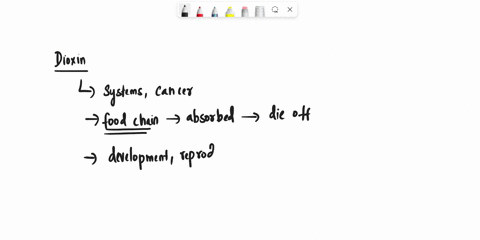 Dioxin
↳ systems, cancer
→ food chain → absorbed → die off
→ development, reprod